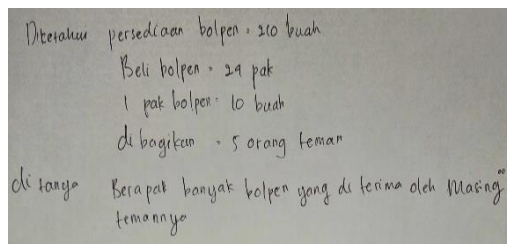 Diketahui persediaan bolpen = 210 buah
Beli bolpen = 24 pak
1 pak bolpen = 10 buah
di bagikan = 5 orang teman
di tanya Berapak banyak bolpen yang di terima oleh Masing"
temannya